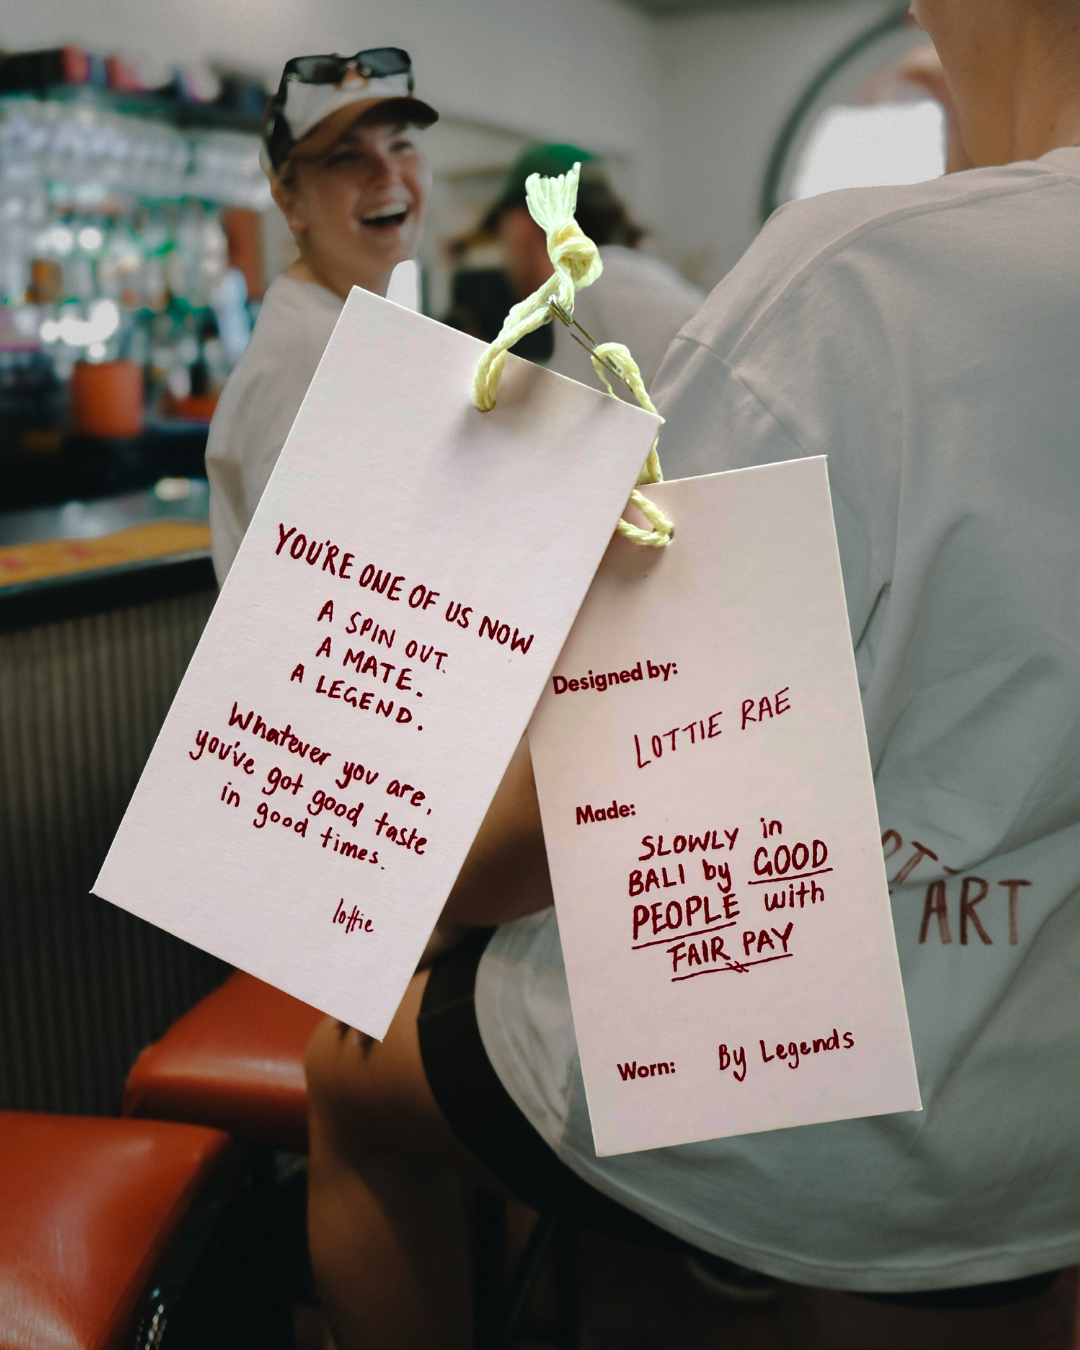 YOU'RE ONE OF US NOW
A SPIN OUT.
A MATE.
A LEGEND.
Whatever you are,
you've got good taste
in good times.
lottie
Designed by:
LOTTIE RAE
Made:
SLOWLY in
BALI by GOOD
PEOPLE with
FAIR PAY
Worn: By Legends
ART